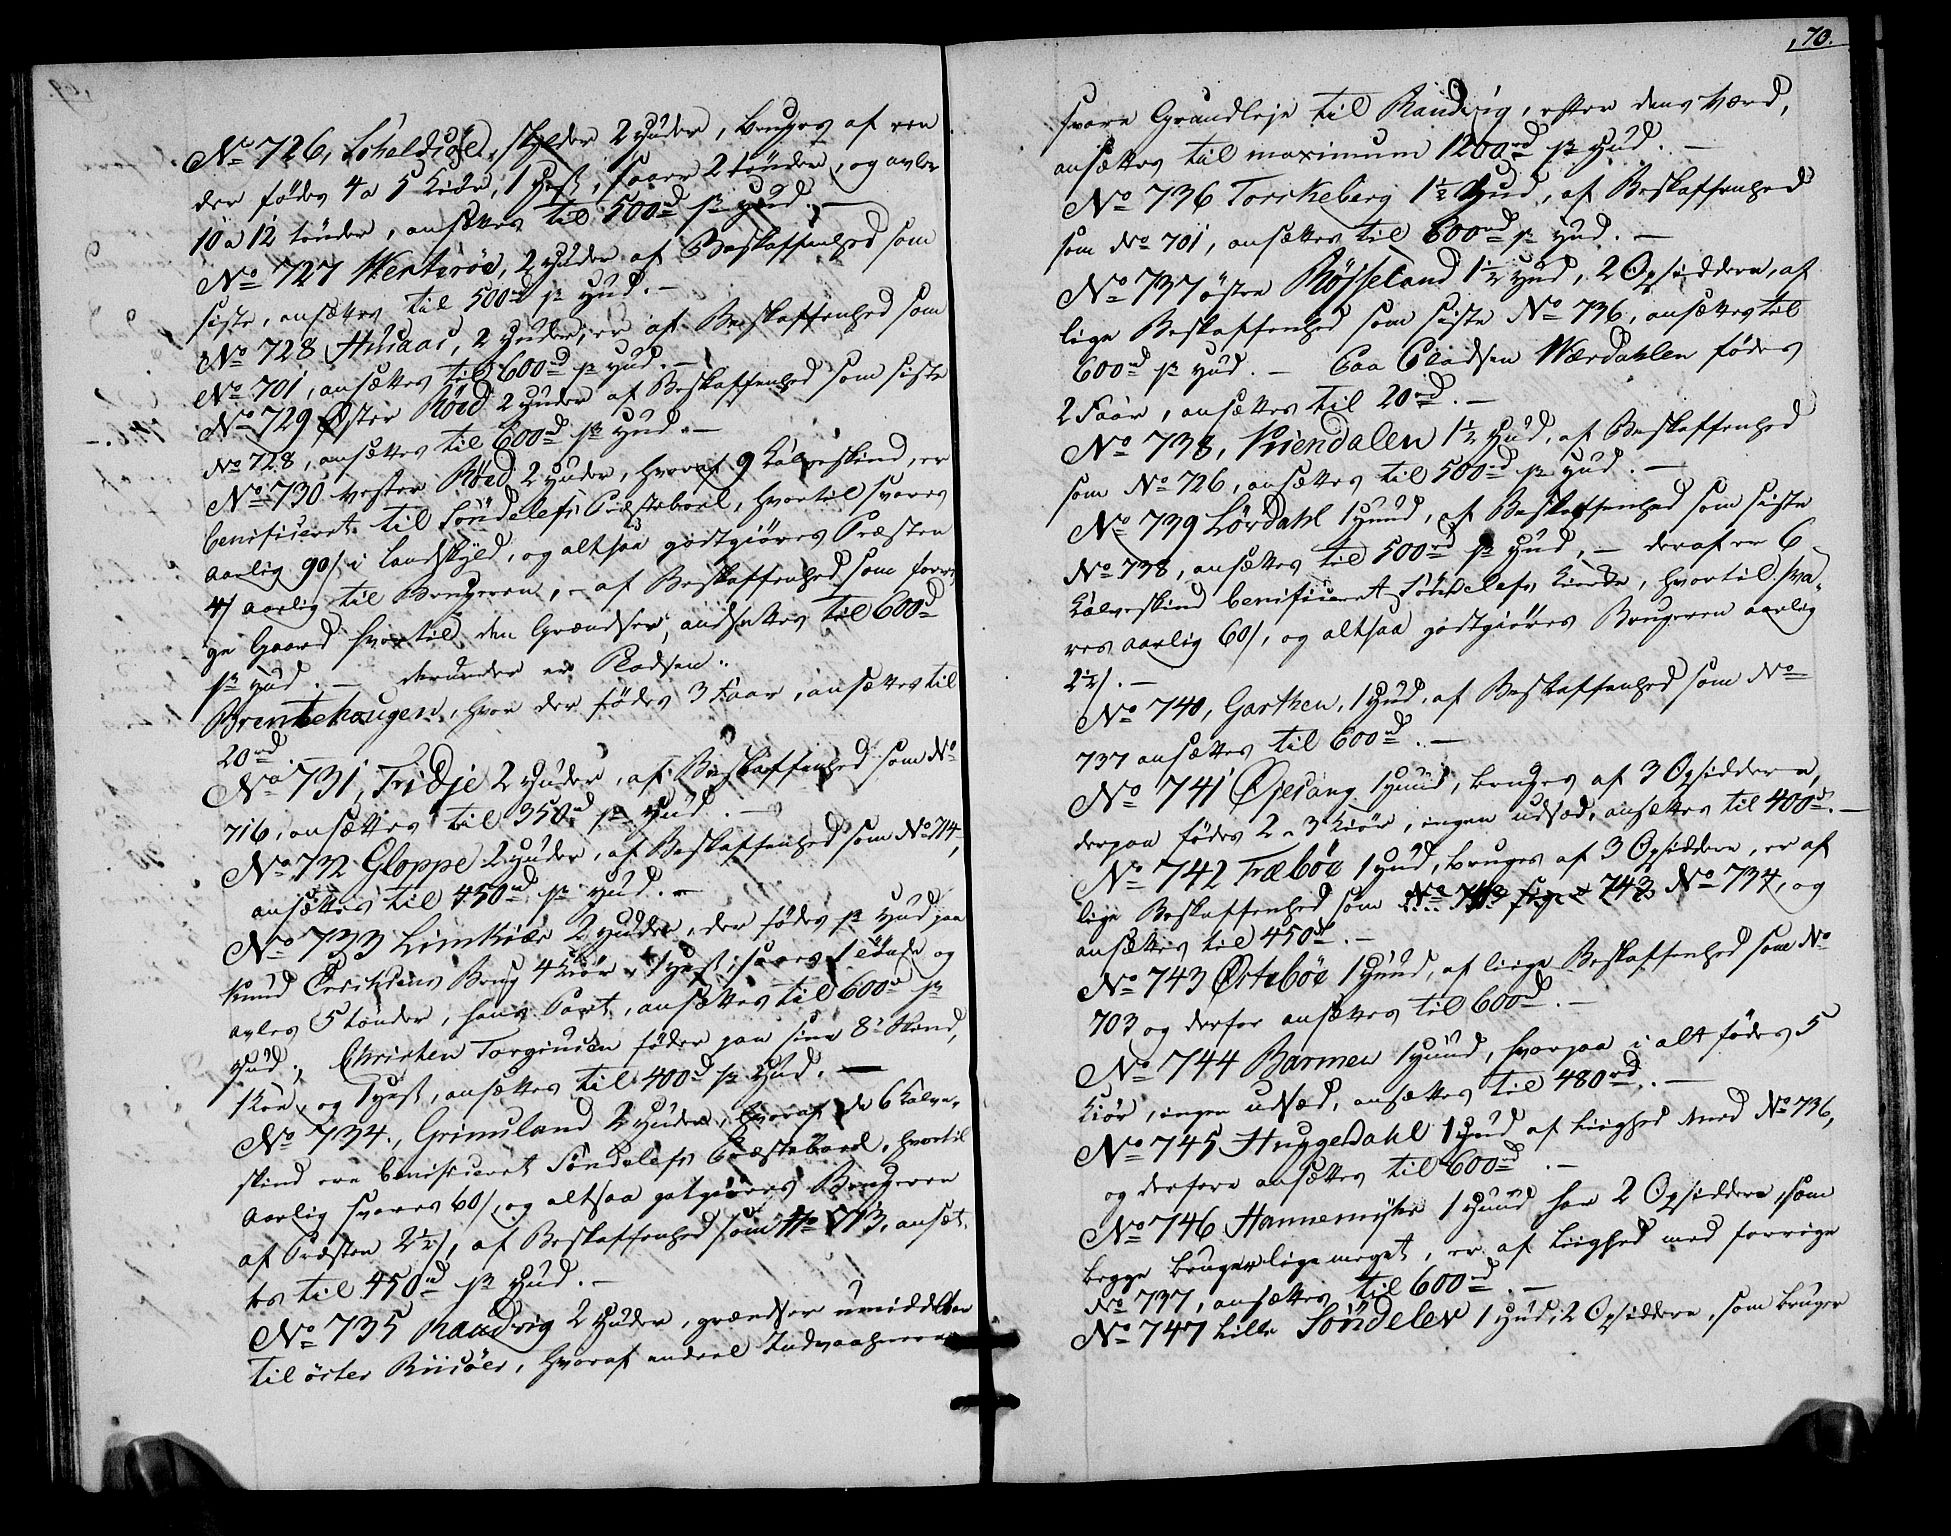 No 726, Scheldigel, skylder 2 Huder, bruges af een
der fødes 4 a 5 Kiør, 1 Hest, saaer 2 tønder, og avler
10 a 12 tønder, ansættes til 500rd pr Hud. —
No 727 Wenterøe, 2 Huder af Beskaffenhed som
siste, ansættes til 500rd pr Hud. —
No 728 Husaas, 2 Huder, er af Beskaffenhed som
No 701, ansættes til 600rd pr Hud. —
No 729 Øster Røed 2 Huder af Beskaffenhed som siste
No 728, ansættes til 600rd pr Hud. —
No 730 vester Røed 2 Huder, hvoraf 9 Kalveskind, er
benificeret til Søndelefs Præsteboel, hvortil svares
aarlig 90/ i Landskyld, og altsaa godtgiøres Præsten
4/ aarlig til Brugeren, – af Beskaffenhed som forri-
ge Gaard hvortil den Grændser, andsettes til 600rd
pr Hud. — derunder er Pladsen..
Brentehougen, hvor der fødes 3 Faar, ansættes til
20rd. —
No 731, Tridje 2 Huder, af Beskaffenhed som No
716, ansættes til 350rd pr Hud. —
No 732 Gloppe 2 Huder, af Beskaffenhed som No 714,
ansættes til 450rd pr Hud. —
No 733 Limkiær 2 Huder, der fødes pr Hud paa
Knud Erichsens Brug 4 Kiør, 1 Hest, saaes 1 tønde og
avles 5 tønder, hans Part, ansættes til 600rd pr
Hud., Christen Torgiusen føder paa sine 8 Skind,
1 Koe, og 1 Hest, ansættes til 400rd pr Hud. —
No 734., Grimuland 2 Huder, hvoraf de 6 Kalve-
skind ere benificeret Søndelefs Præsteboel, hvortil
aarlig svares 60/, og altsaa gotgiøres Brugeren
af Præsten 2½/, af Beskaffenhed som No 713, ansæt-
tes til 450rd pr Hud. —
No 735 Randvig 2 Huder, grændser umiddelbar
til øster Riisøer, hvoraf endeel Indvaahnere
70.
svare Grundleje til Randvig, efter dens Værd,
ansættes til maximum 1200rd pr Hud. —
No 736 Torskeberg 1½ Hud, af Beskaffenhed
som No 701, ansættes til 600rd pr Hud. —
No 737 østre Røsseland 1½ Hud, 2 Opsiddere, af
lige Beskaffenhed som siste No 736, ansættes til
600rd pr Hud. — Paa Pladsen Wærdahlen fødes
2 Faar, ansættes til 20rd. —
No 738, Vriendalen 1½ Hud, af Beskaffenhed
som No 726, ansættes til 500rd pr Hud. —
No 739 Lørdahl 1 Huud, af Beskaffenhed som siste
No 738, ansættes til 500rd pr Hud, — deraf er 6
Kalveskind benificeret Søndelefs Kirke, hvortil sva-
res aarlig 60/, og altsaa godtgiøres Brugeren aarlig
2½/. —
No 740, Garthen, 1 Hud, af Beskaffenhed som No
737 ansættes til 600rd. —
No 741 Øjesang 1 Huud, bruges af 3 Opsiddere,
derpaa fødes 2 a 3 Kiør, ingen udsæd, ansættes til 400rd. —
No 742 Træbøe 1 Hud, bruges af 3 Opsiddere, er af
lige Beskaffenhed som No 734, og
ansættes til 450rd. —
No 743 Ørtebøe 1 Huud, af liige Beskaffenhed som No
703 og derfor ansættes til 600rd. —
No 744 Barmen 1 Huud, hvorpaa i alt fødes 5
Kiør, ingen udsæd, ansættes til 480rd. —
No 745 Huggerdahl 1 Hud af Liighed med No 736,
og derfore ansættes til 600rd. —
No 746 Hannemyhr 1 Huud har 2 Opsiddere, som
begge bruger lige meget, er af Liighed med forrige
No 737, ansættes til 600rd. —
No 747 Lille Søndelev 1 Hud, 2 Opsiddere, som bruger